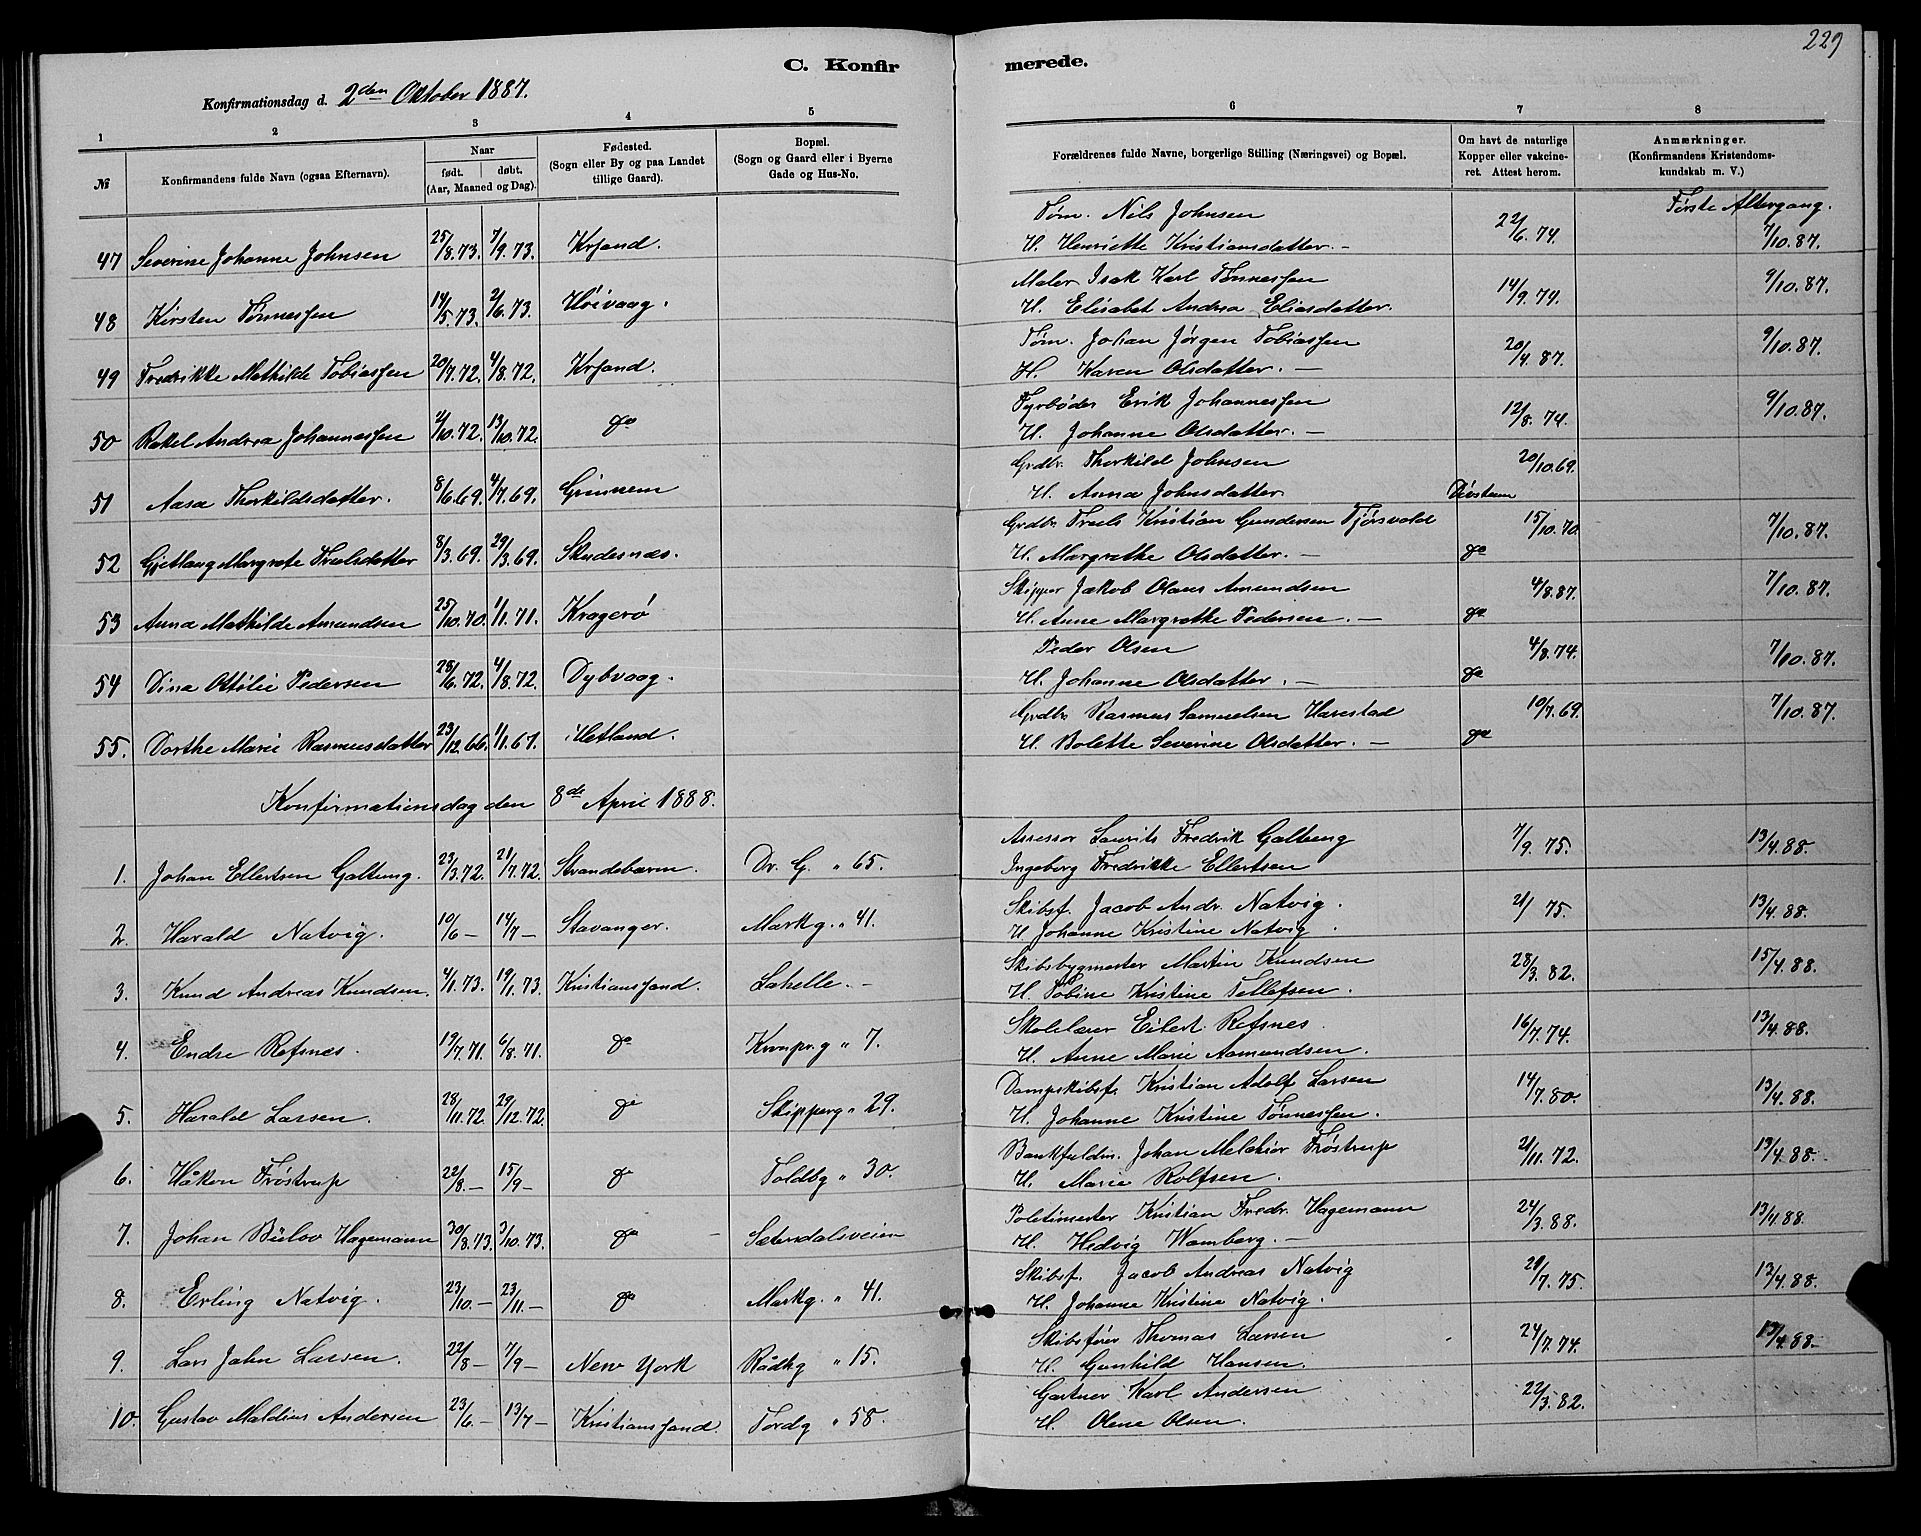 229
C. Konfirmerede.
Konfirmationsdag d. 2den Oktober 1887.
1 2 3 4 5 6 7 8
№ Konfirmandens fulde Navn (ogsaa Efternavn). Naar født. døbt. (Aar, Maaned og Dag). Fødested. (Sogn eller By og paa Landet tillige Gaard). Bopæl. (Sogn og Gaard eller i Byerne Gade og Hus-No. Forældrenes fulde Navne, borgerlige Stilling (Næringsvei) og Bopæl. Om havt de naturlige Kopper eller vakcineret. Attest herom. Anmærkninger. (Konfirmandens Kristendomskundskab m. V.)
Første Altergang.
47 Severine Johanne Johnsen 25/8.73. 7/9.73. Krsand. Tøm. Nils Johnsen 22/6.74. 7/10.87.
H. Henriette Kristiansdatter. –
48 Kirsten Tønnessen 14/5.73. 2/6.73. Høivaag. Maler Isak Karl Tønnessen 14/9.74. 9/10.87.
H. Elisabet Andrea Eliasdatter.
49 Fredrikke Mathilde Tobiassen 20/7.72. 4/8.72. Krsand. Tøm. Johan Jørgen Tobiassen 20/4.87. 9/10.87.
H. Karen Olsdatter. –
50 Rakel Andrea Johannessen 2/10.72. 13/10.72. do Fyrbøder Erik Johannessen 12/8.74. 9/10.87.
H. Johanne Olsdatter. –
51 Aasa Thorkildsdatter. 8/6.69. 4/7.69. Grinnem Grdbr. Thorkild Johnsen 20/10.69.
H. Anna Johnsdatter Døvstum
52 Gjetlaug Margrete Truelsdatter 8/3.69. 29/3.69. Skudesnæs. Grdbr. Truls Kristian Gundersen Tjørsvold 15/10.70. 7/10.87.
H. Margrethe Olsdatter. – do
53 Anna Mathilde Amundsen 25/10.70. 1/1.71. Kragerø Skipper Jakob Olaus Amundsen 4/8.87. 7/10.87.
H. Anne Margrethe Pedersen. – do
54 Dina Ottilie Pedersen 28/6.72. 4/8.72. Dybvaag. Peder Olsen 4/8.74. 7/10.87.
H. Johanne Olsdatter. – do
55. Dorthe Marie Rasmusdatter 23/12.66. 1/1.67. Hetland. Grdbr. Rasmus Samuelsen Harestad 10/7.69. 7/10.87.
H. Bolette Severine Olsdatter. – do
Konfirmationsdag den 8de April 1888.
1. Johan Ellertsen Galtung. 23/3.72. 21/7.72. Strandebarm. Dr. G. " 65. Assessor Laurits Fredrik Galtung 7/9.75. 13/4.88.
Ingeborg Fredrikke Ellertsen
2. Harald Natvig. 10/6 – 14/7 – Stavanger. Markg. " 41. Skibsf. Jacob Andr. Natvig. 21/ 75. 13/4.88.
H. Johanne Kristine Natvig.
3. Knud Andreas Knudsen. 4/1.73. 19/1.73. Kristianssand. Lahelle. – Skibsbygmester Martin Knudsen 28/3.82. 15/4.88.
H. Tobine Kristine Tellefsen.
4. Endre Refsnes. 19/7.71. 6/8.71. do Kronpr.g " 7. Skolelærer Eilert Refsnes. 16/7.74. 13/4.88.
H. Anne Marie Aamundsen.
5. Harald Larsen. 28/11.72. 29/12.72. do Skipperg " 29. Dampskibsf. Kristian Adolf Larsen 14/7.80. 13/4.88.
H. Johanne Kristine Tønnessen.
6. Håkon Frøstrup 22/8. – 15/9 – do Toldbg " 30. Bankfuldm. Johan Melchior Frøstrup 21/11.72. 13/4.88.
H. Marie Rolfsen.
7. Johan Bülow Hagemann 30/8.73. 3/10.73. do Sætersdalsveien Politimester Kristian Fredr. Hagemann 24/3.88. 13/4.88
H. Hedvig Wamberg. –
8. Erling Natvig. 23/10. – 23/11. – do Markg. " 41. Skibsf. Jacob Andreas Natvig 21/7.75. 13/4.88.
H. Johanne Kristine Natvig.
9. Lars Jahn Larsen. 22/8 – 7/9 – New York Rådhg " 15. Skibsfører Thomas Larsen 24/7.74. 13/4.88.
H. Gunhild Hansen.
10. Gustav Maldius Andersen 23/6 – 13/7 – Kristianssand. Tordg " 58. Gartner Karl Andersen 22/3.82.
H. Olene Olsen.